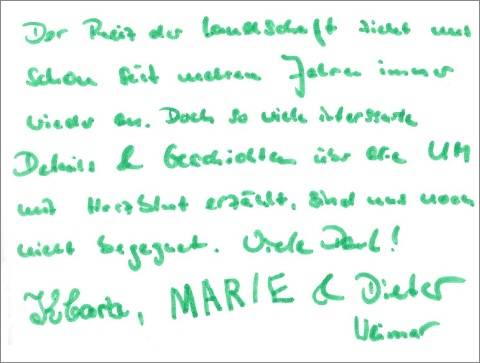 Der Reiz der Landschaft zieht uns
schon seit mehren Jahren immer
wieder an. Doch so viele interssante
Details & Geschichten über die UM
mit Herzblut erzählt, sind uns noch
nicht begegnet. Viele Dank!
MARIE & Dieter
Weimar